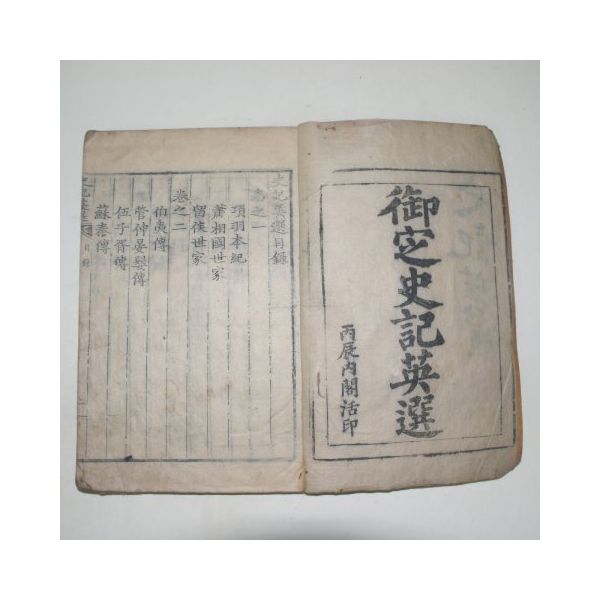 御定史記英選
丙辰內閣活印
史記英選目錄
卷之一
項羽本紀
蕭相國世家
留侯世家
卷之二
伯夷傳
管仲晏嬰傳
伍子胥傳
蘇秦傳